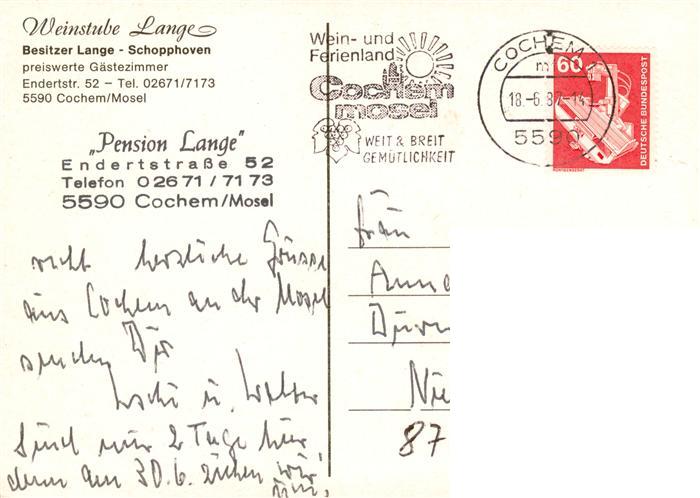 Weinstube Lange
Besitzer Lange - Schopphoven
preiswerte Gästezimmer
Endertstr. 52 – Tel. 02671/7173
5590 Cochem/Mosel
„Pension Lange"
Endertstraße 52
Telefon 02671/7173
5590 Cochem/Mosel
Wein- und
Ferienland
Cochem
mosel
WEIT & BREIT
GEMÜTLICHKEIT
COCHEM
18.-6.87.-14
5590
60
DEUTSCHE BUNDESPOST
recht herzliche Grüsse
aus Cochem an der Mosel
senden Dir
u. Walter
Sind nur 2 Tage hier
denn am 30.6. ziehen wir
um.
Frau
Anne
Nie
87